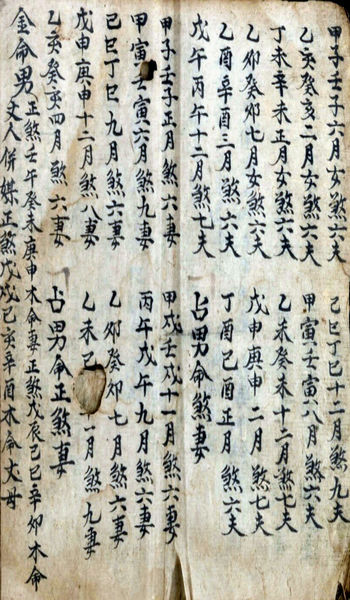 甲子壬子正月女煞六夫 己巳丁巳十二月煞九夫
乙亥癸亥二月女煞六夫 甲寅壬寅八月煞六夫
丁未辛未正月女煞六夫 乙未癸未十二月煞七夫
乙卯癸卯七月女煞六夫 戊申庚申二月煞七夫
乙酉辛酉三月煞六夫 丁酉己酉正月煞六夫
戊午丙午十二月煞七夫 占男命煞妻
甲子壬子正月煞六妻 甲戌壬戌十一月煞六妻
甲寅壬寅六月煞九妻 丙午戊午九月煞六妻
己巳丁巳九月煞六妻 乙卯癸卯七月煞六妻
戊申庚申十二月煞八妻 乙未 一月煞九妻
乙亥癸亥四月煞六妻 占男命正煞妻
金命男 正煞壬午癸未庚申木命妻正煞戊辰己巳辛卯木命
丈人併媒正煞戊戌己亥辛酉木命丈母